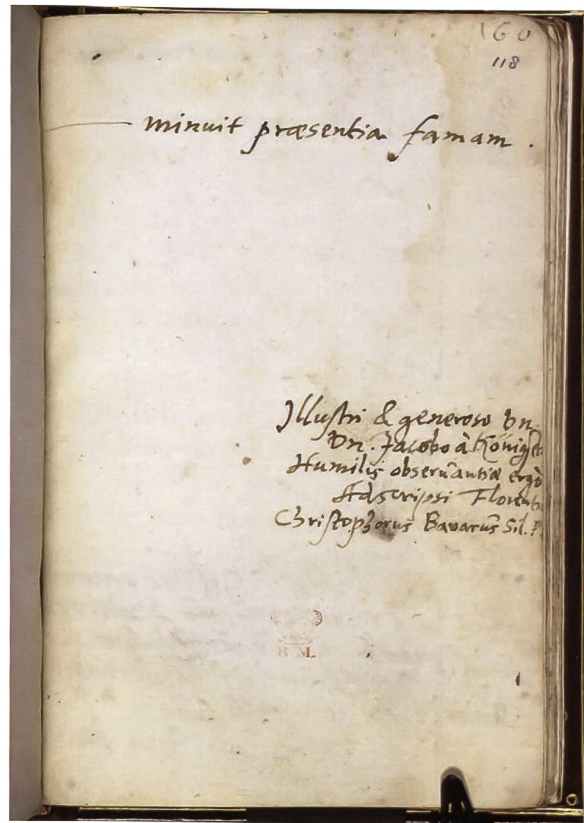 160
118
minuit præsentia famam .
Illustri & generoso Dn
Dn. Jacobo à Königs
Humilis obseruantiæ ergò
Adscripsi Florent
Christophorus Bavarus Sil.